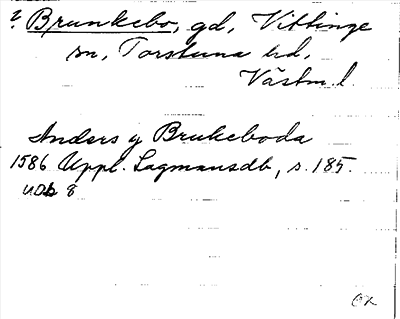 ? Brunkebo, gd, Vittinge
sn, Torstuna hd,
Västm. l.
Anders y Brukeboda
1586 Uppl. Lagmansdb, s. 185.
UDb 8